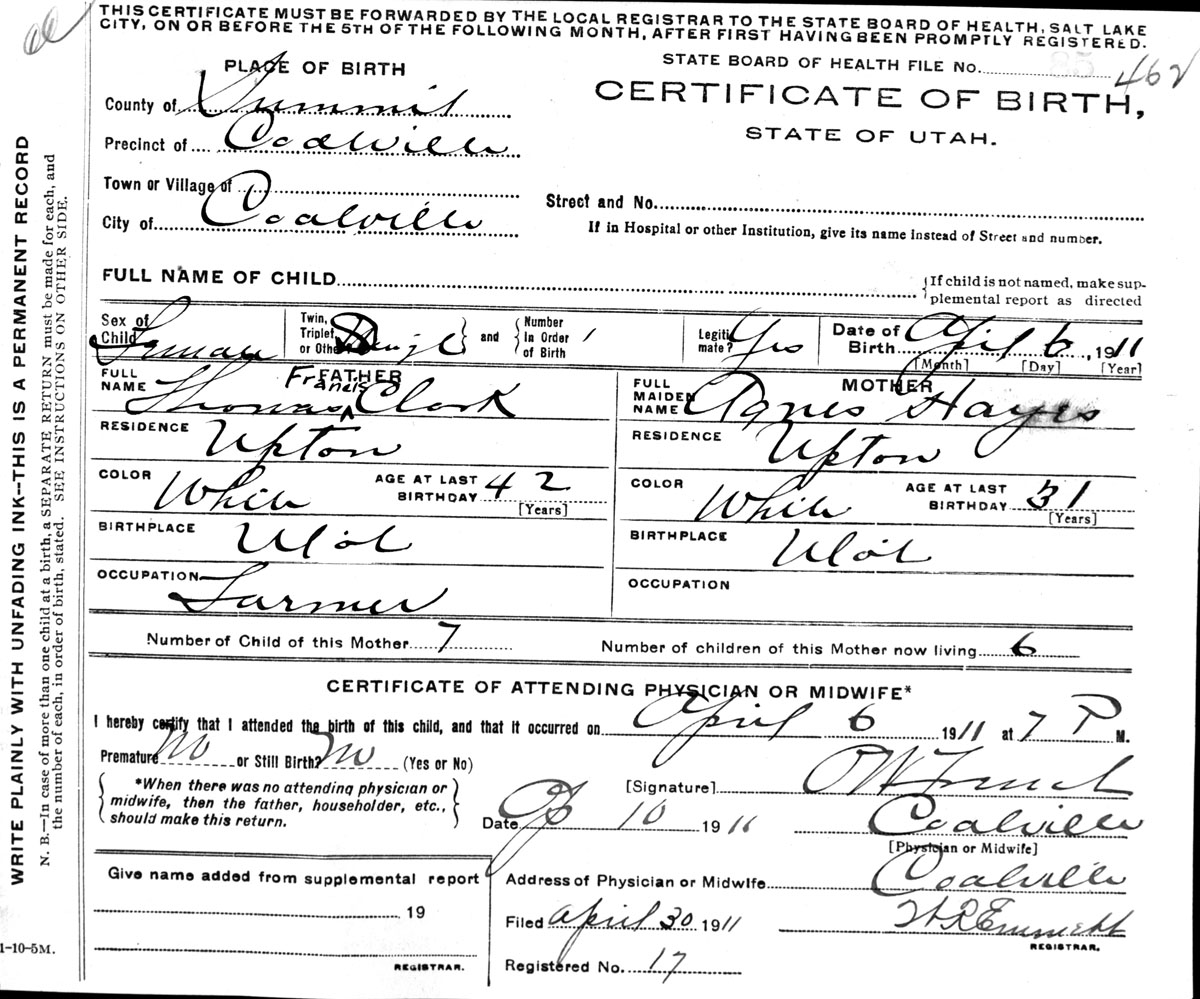 THIS CERTIFICATE MUST BE FORWARDED BY THE LOCAL REGISTRAR TO THE STATE BOARD OF HEALTH, SALT LAKE
CITY, ON OR BEFORE THE 5TH OF THE FOLLOWING MONTH, AFTER FIRST HAVING BEEN PROMPTLY REGISTERED.
STATE BOARD OF HEALTH FILE No. 85 462
CERTIFICATE OF BIRTH,
STATE OF UTAH.
PLACE OF BIRTH
County of Summit
Precinct of Coalville
Town or Village of
City of Coalville
Street and No.
If in Hospital or other Institution, give its name instead of Street and number.
FULL NAME OF CHILD
{If child is not named, make sup-
plemental report as directed
Sex of
Child Female
Twin,
Triplet,
or Other Single
and
Number
In Order
of Birth 1
Legiti
mate? Yes
Date of
Birth April 6, 1911
[Month] [Day] [Year]
FATHER
FULL
NAME Thomas Francis Clark
RESIDENCE Upton
COLOR White
AGE AT LAST
BIRTHDAY 42
[Years]
BIRTHPLACE Utah
OCCUPATION Farmer
MOTHER
FULL
MAIDEN
NAME Agnes Hayes
RESIDENCE Upton
COLOR White
AGE AT LAST
BIRTHDAY 31
[Years]
BIRTHPLACE Utah
OCCUPATION
Number of Child of this Mother 7
Number of children of this Mother now living 6
CERTIFICATE OF ATTENDING PHYSICIAN OR MIDWIFE*
I hereby certify that I attended the birth of this child, and that it occurred on April 6 1911 at 7 P M.
Premature No or Still Birth? No (Yes or No)
*When there was no attending physician or
midwife, then the father, householder, etc.,
should make this return.
[Signature]
Date Ap 10 1911
Coalville
[Physician or Midwife]
Give name added from supplemental report
19
REGISTRAR.
Address of Physician or Midwife Coalville
Filed April 30 1911
Emmett
REGISTRAR.
Registered No. 17
WRITE PLAINLY WITH UNFADING INK—THIS IS A PERMANENT RECORD
N. B.—In case of more than one child at a birth, a SEPARATE RETURN must be made for each, and
the number of each, in order of birth, stated. SEE INSTRUCTIONS ON OTHER SIDE.
1-10-5M.